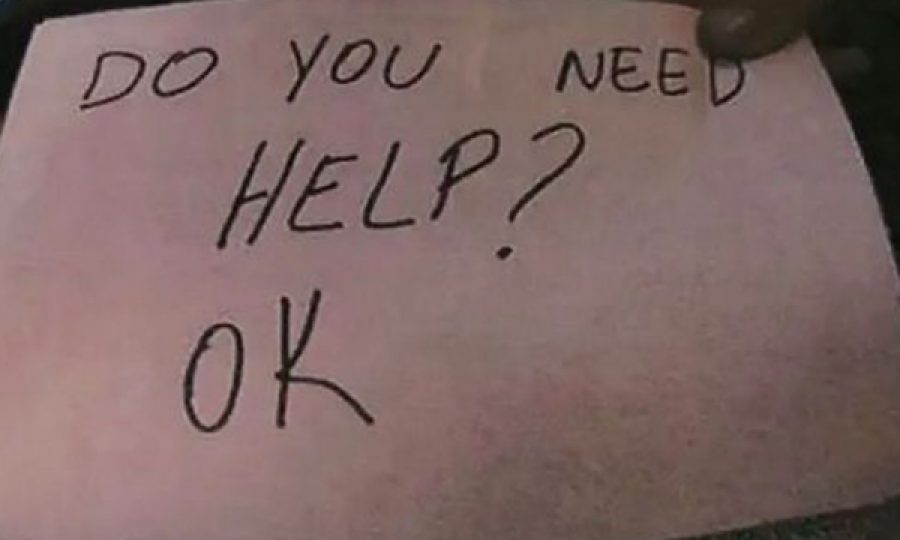 DO YOU NEED
HELP?
OK